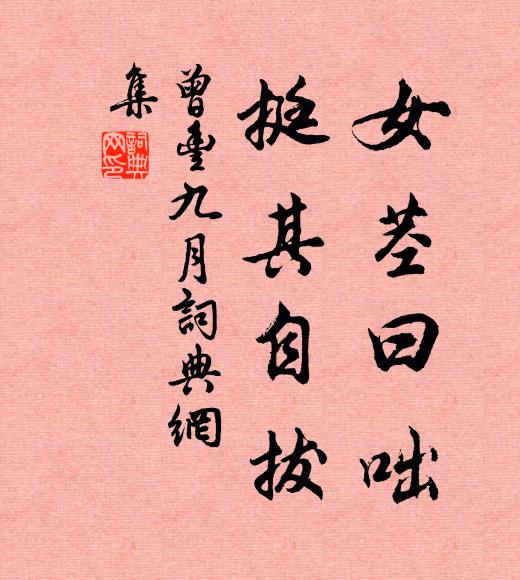 女茎曰咄
挺其自拔
曾豊九月詞典網
集
詞典网印